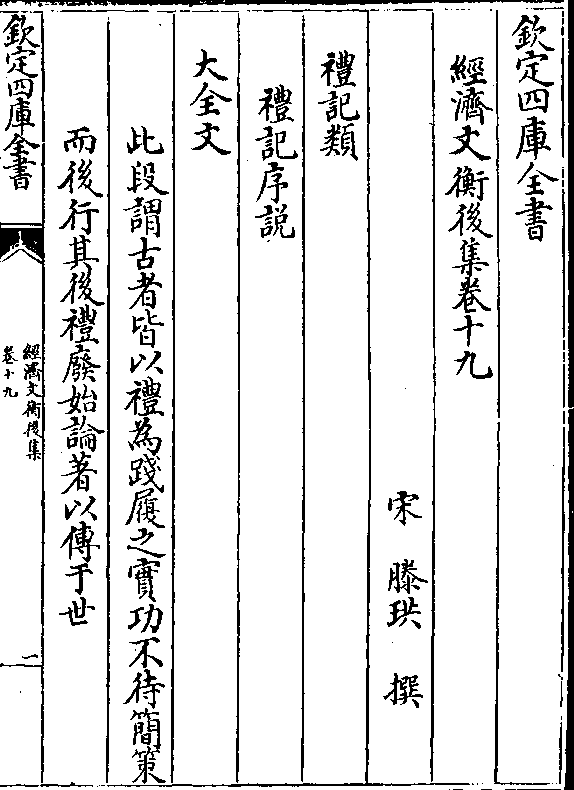 欽定四庫全書
經濟文衡後集卷十九
宋 滕珙 撰
禮記類
禮記序説
大全文
此段謂古者皆以禮為踐履之實功不待簡策
而後行其後禮廢始論著以傳于世
欽定四庫全書
經濟文衡後集
卷十九
一